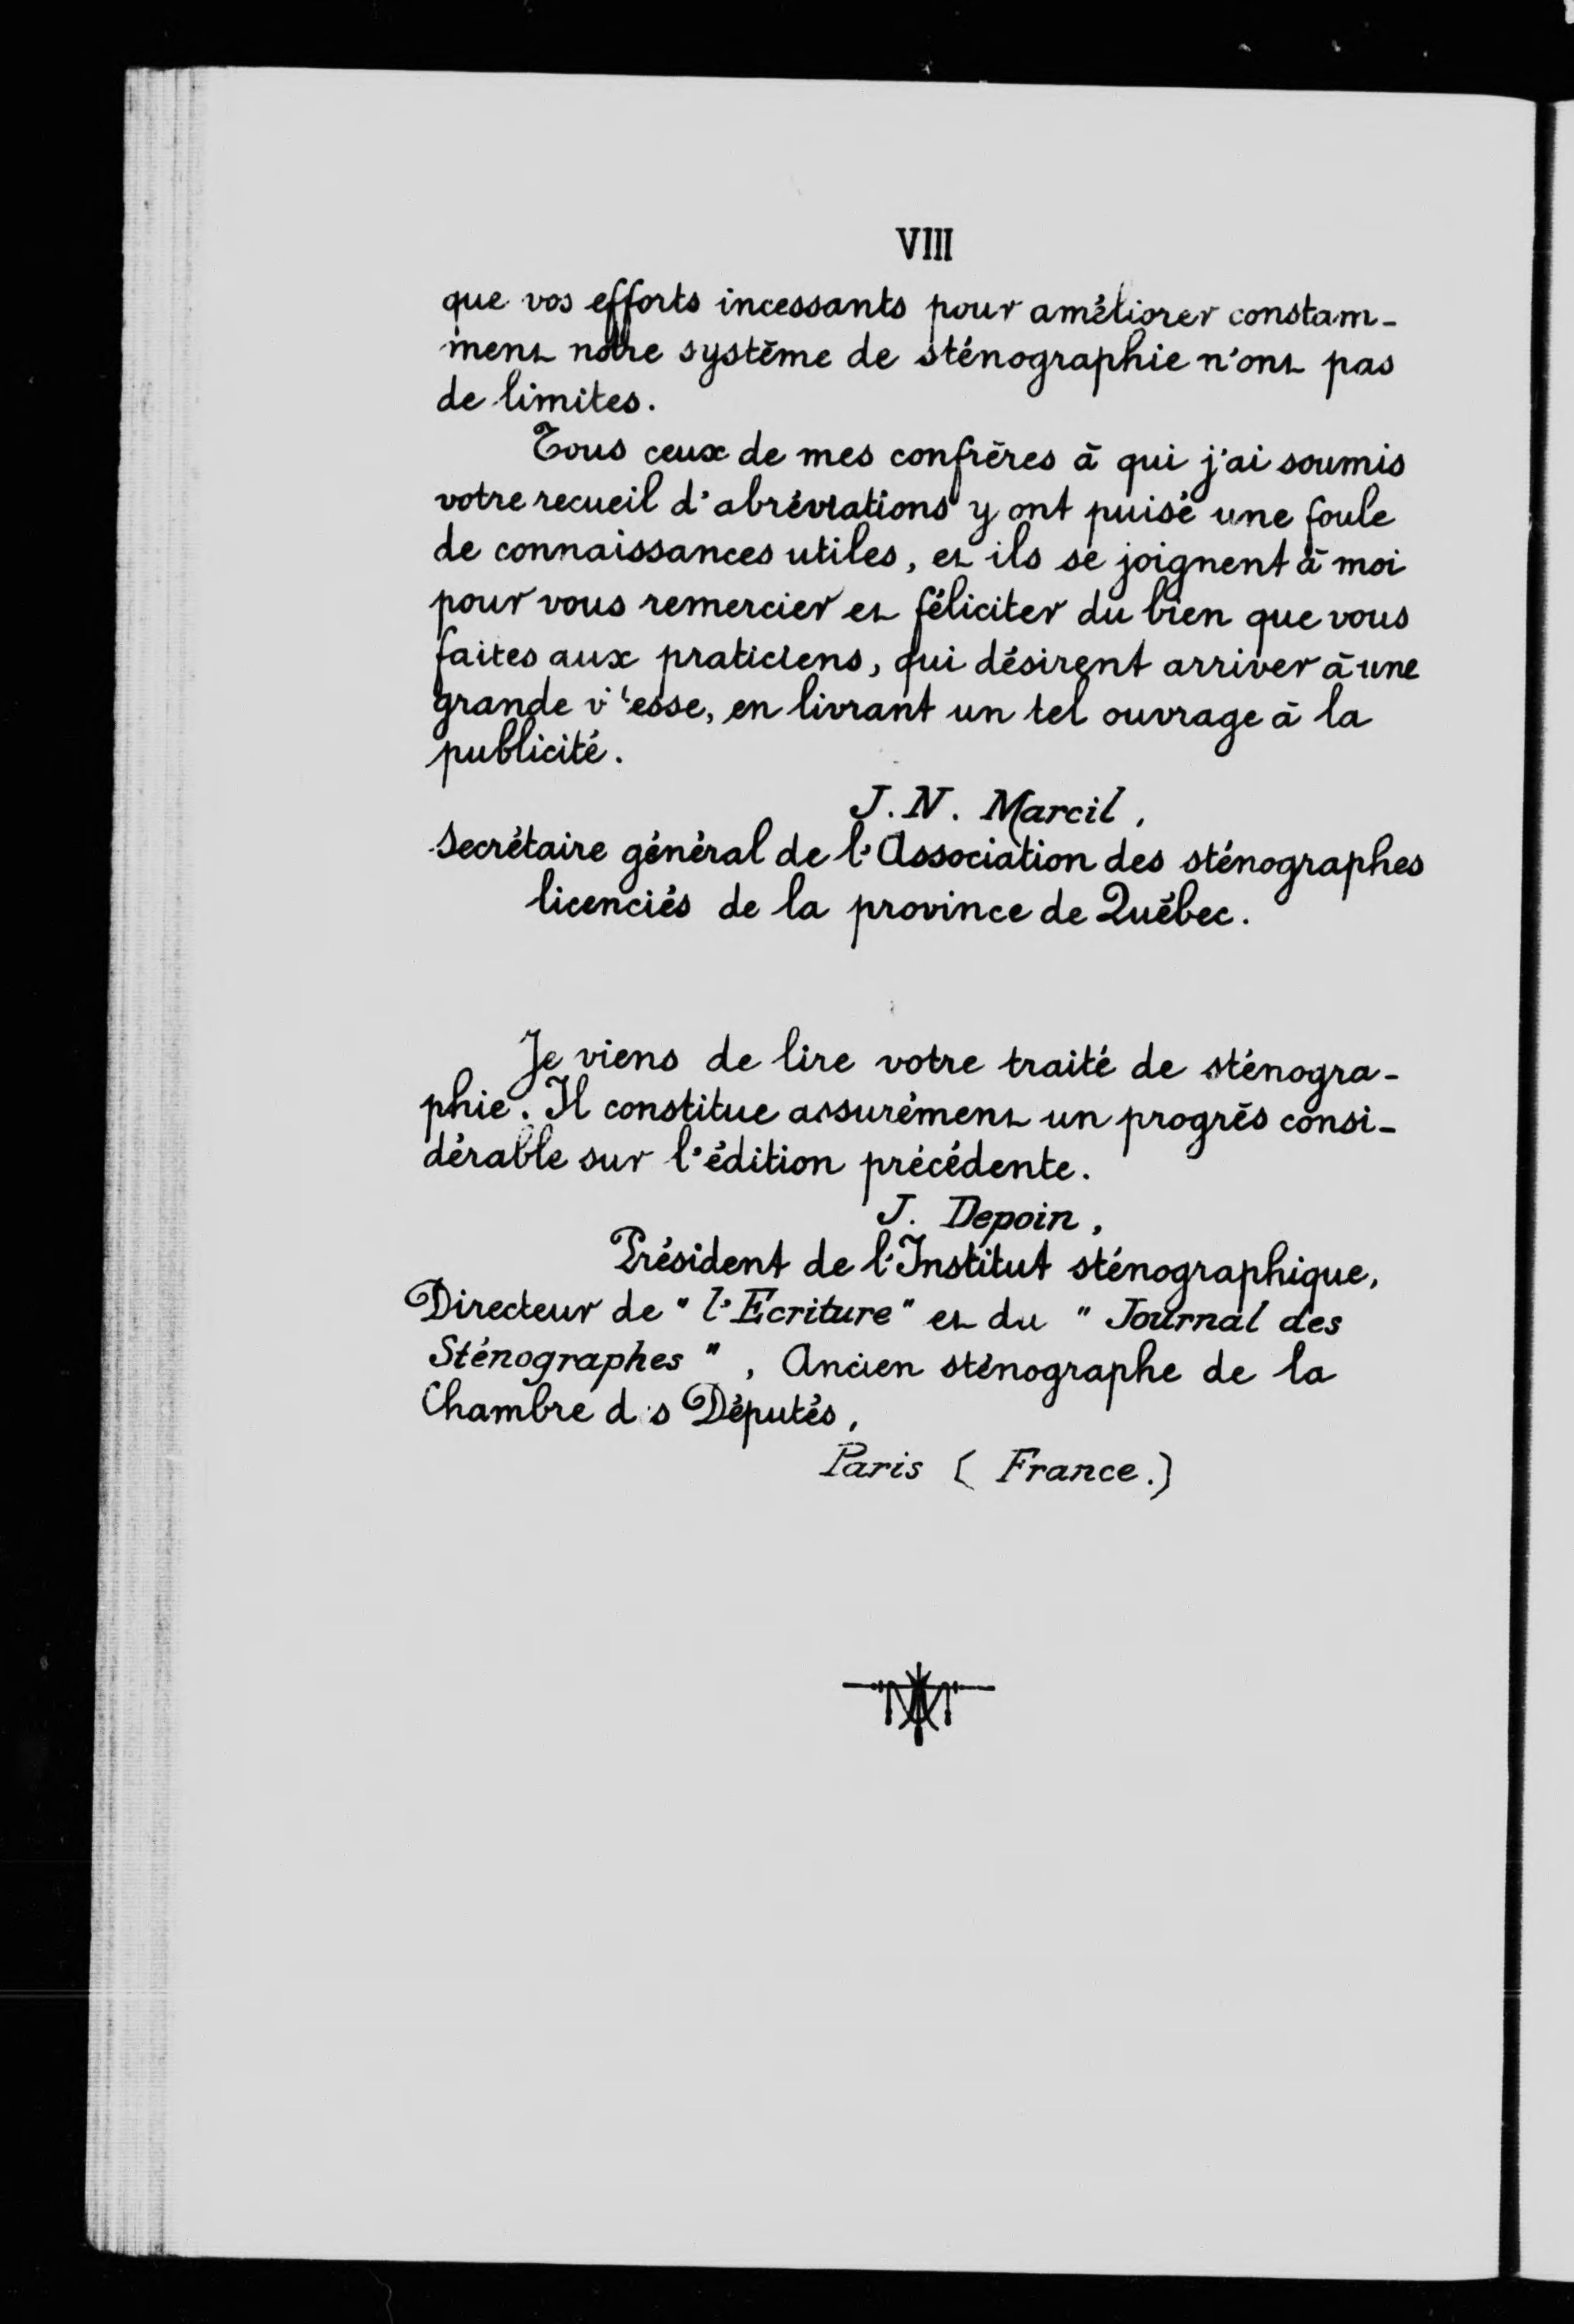 VIII
que vos efforts incessants pour améliorer constam-
ment notre système de sténographie n'ont pas
de limites.
Tous ceux de mes confrères à qui j'ai soumis
votre recueil d'abréviations y ont puisé une foule
de connaissances utiles, et ils se joignent à moi
pour vous remercier et féliciter du bien que vous
faites aux praticiens, qui désirent arriver à une
grande v'tesse, en livrant un tel ouvrage à la
publicité.
J. N. Marcil,
Secrétaire général de l'Association des sténographes
licenciés de la province de Québec.
Je viens de lire votre traité de sténogra-
phie. Il constitue assurément un progrès consi-
dérable sur l'édition précédente.
J. Depoin,
Président de l'Institut sténographique,
Directeur de "l'Ecriture" et du "Journal des
Sténographes", Ancien sténographe de la
Chambre des Députés,
Paris (France.)